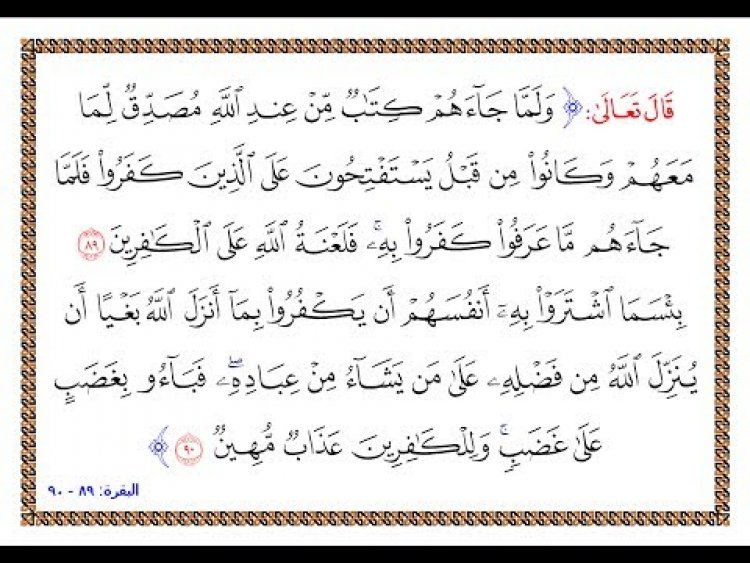 قَالَ تَعَالَىٰ: ﴿ وَلَمَّا جَآءَهُمْ كِتَٰبٌ مِّنْ عِندِ ٱللَّهِ مُصَدِّقٌ لِّمَا
مَعَهُمْ وَكَانُوا۟ مِن قَبْلُ يَسْتَفْتِحُونَ عَلَى ٱلَّذِينَ كَفَرُوا۟ فَلَمَّا
جَآءَهُم مَّا عَرَفُوا۟ كَفَرُوا۟ بِهِۦ ۚ فَلَعْنَةُ ٱللَّهِ عَلَى ٱلْكَٰفِرِينَ ٨٩
بِئْسَمَا ٱشْتَرَوْا۟ بِهِۦٓ أَنفُسَهُمْ أَن يَكْفُرُوا۟ بِمَآ أَنزَلَ ٱللَّهُ بَغْيًا أَن
يُنَزِّلَ ٱللَّهُ مِن فَضْلِهِۦ عَلَىٰ مَن يَشَآءُ مِنْ عِبَادِهِۦ ۖ فَبَآءُو بِغَضَبٍ
عَلَىٰ غَضَبٍ ۚ وَلِلْكَٰفِرِينَ عَذَابٌ مُّهِينٌ ٩٠ ﴾
البقرة: ٨٩ - ٩٠